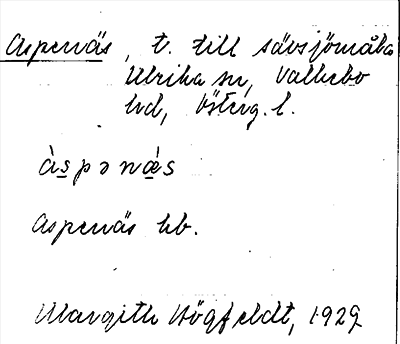 Aspenäs, t. till sävsjömåla
Ulrika sn, Vallebo
hd, Österg. l.
àspənǽs
Aspenäs hb.
Margith Högfeldt, 1929